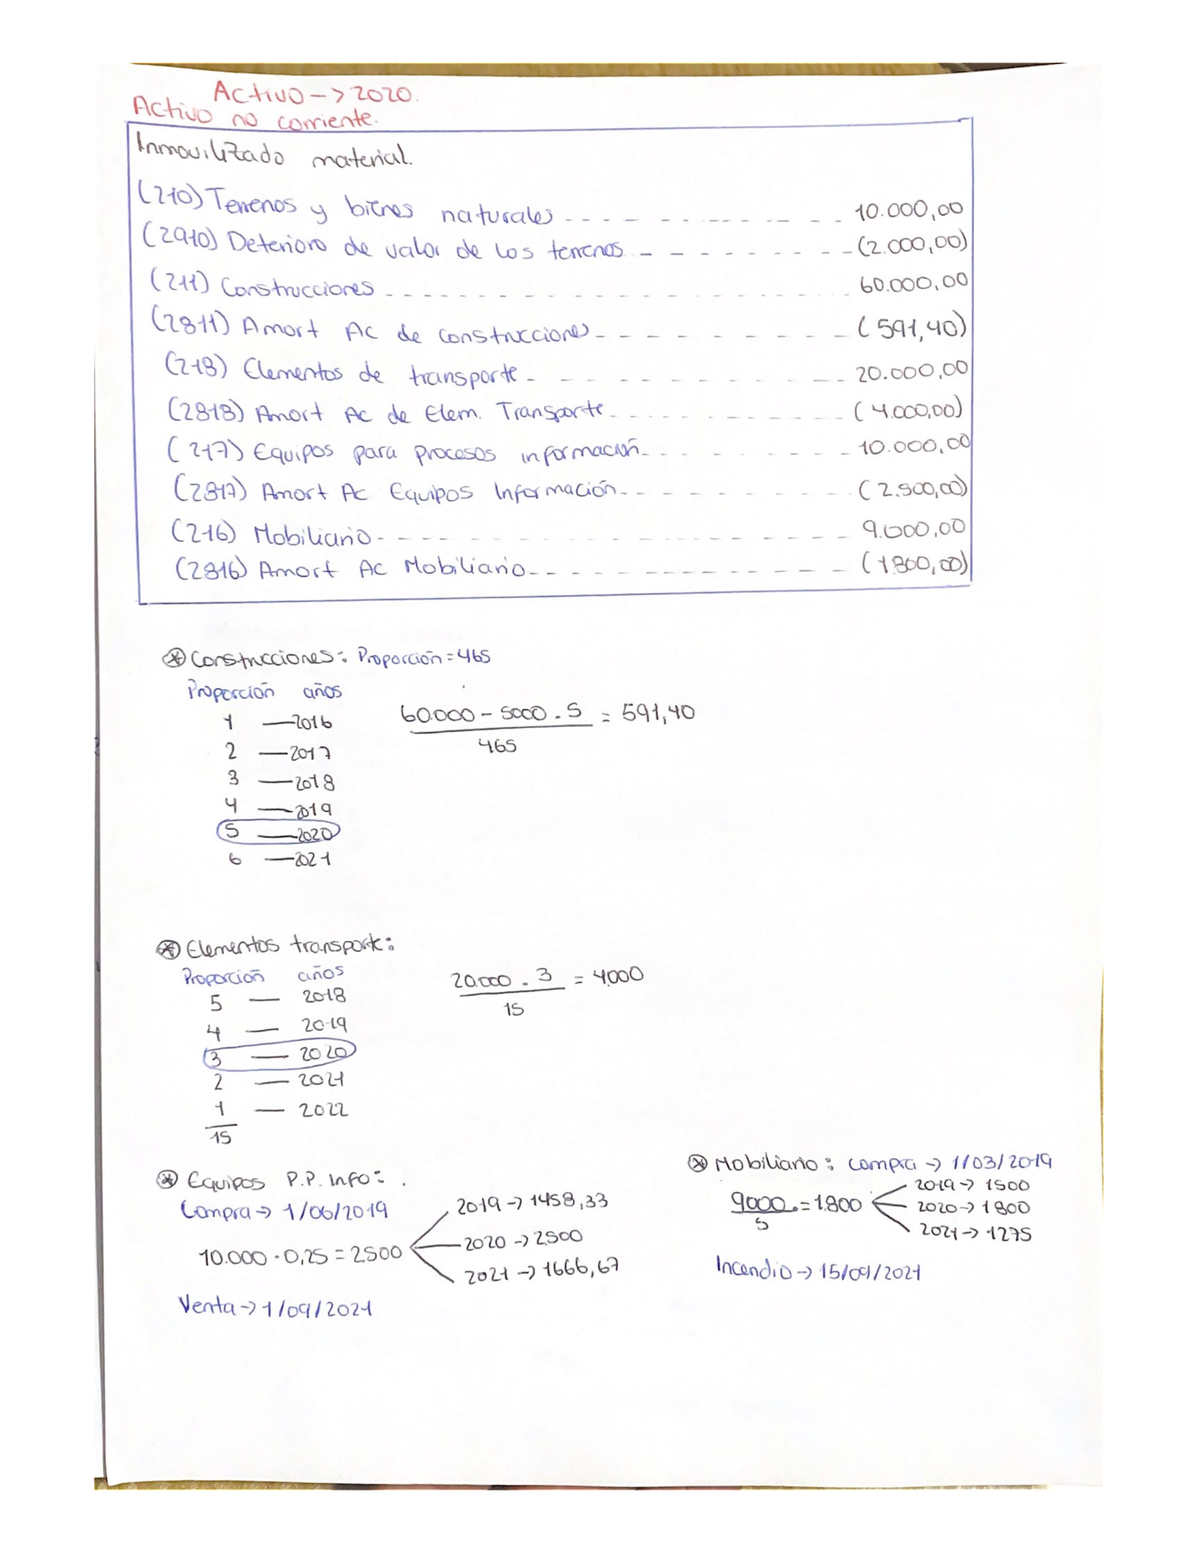 Activo -> 2020.
Activo no corriente.
Inmovilizado material.
(210) Terrenos y bienes naturales 10.000,00
(2910) Deterioro de valor de los terrenos (2.000,00)
(211) Construcciones 60.000,00
(2811) Amort Ac de construcciones (591,40)
(218) Elementos de transporte 20.000,00
(2818) Amort Ac de Elem. Transporte (4.000,00)
(217) Equipos para procesos información 10.000,00
(2817) Amort Ac Equipos Información (2.500,00)
(216) Mobiliario 9.000,00
(2816) Amort Ac Mobiliario (1800,00)
Construcciones: Proporción = 465
Proporción años
1 — 2016
2 — 2017
3 — 2018
4 — 2019
5 — 2020
6 — 2021
60.000 - 5000 . 5 = 591,40
465
Elementos transporte:
Proporción años
5 — 2018
4 — 2019
3 — 2020
2 — 2021
1 — 2022
15
20.000 . 3 = 4.000
15
Equipos P.P. Info:
Compra -> 1/06/2019
10.000 · 0,25 = 2500
2019 -> 1458,33
2020 -> 2500
2021 -> 1666,67
Venta -> 1/09/2021
Mobiliario: compra -> 1/03/2019
9000 = 1.800
5
2019 -> 1500
2020 -> 1800
2021 -> 1275
Incendio -> 15/09/2021